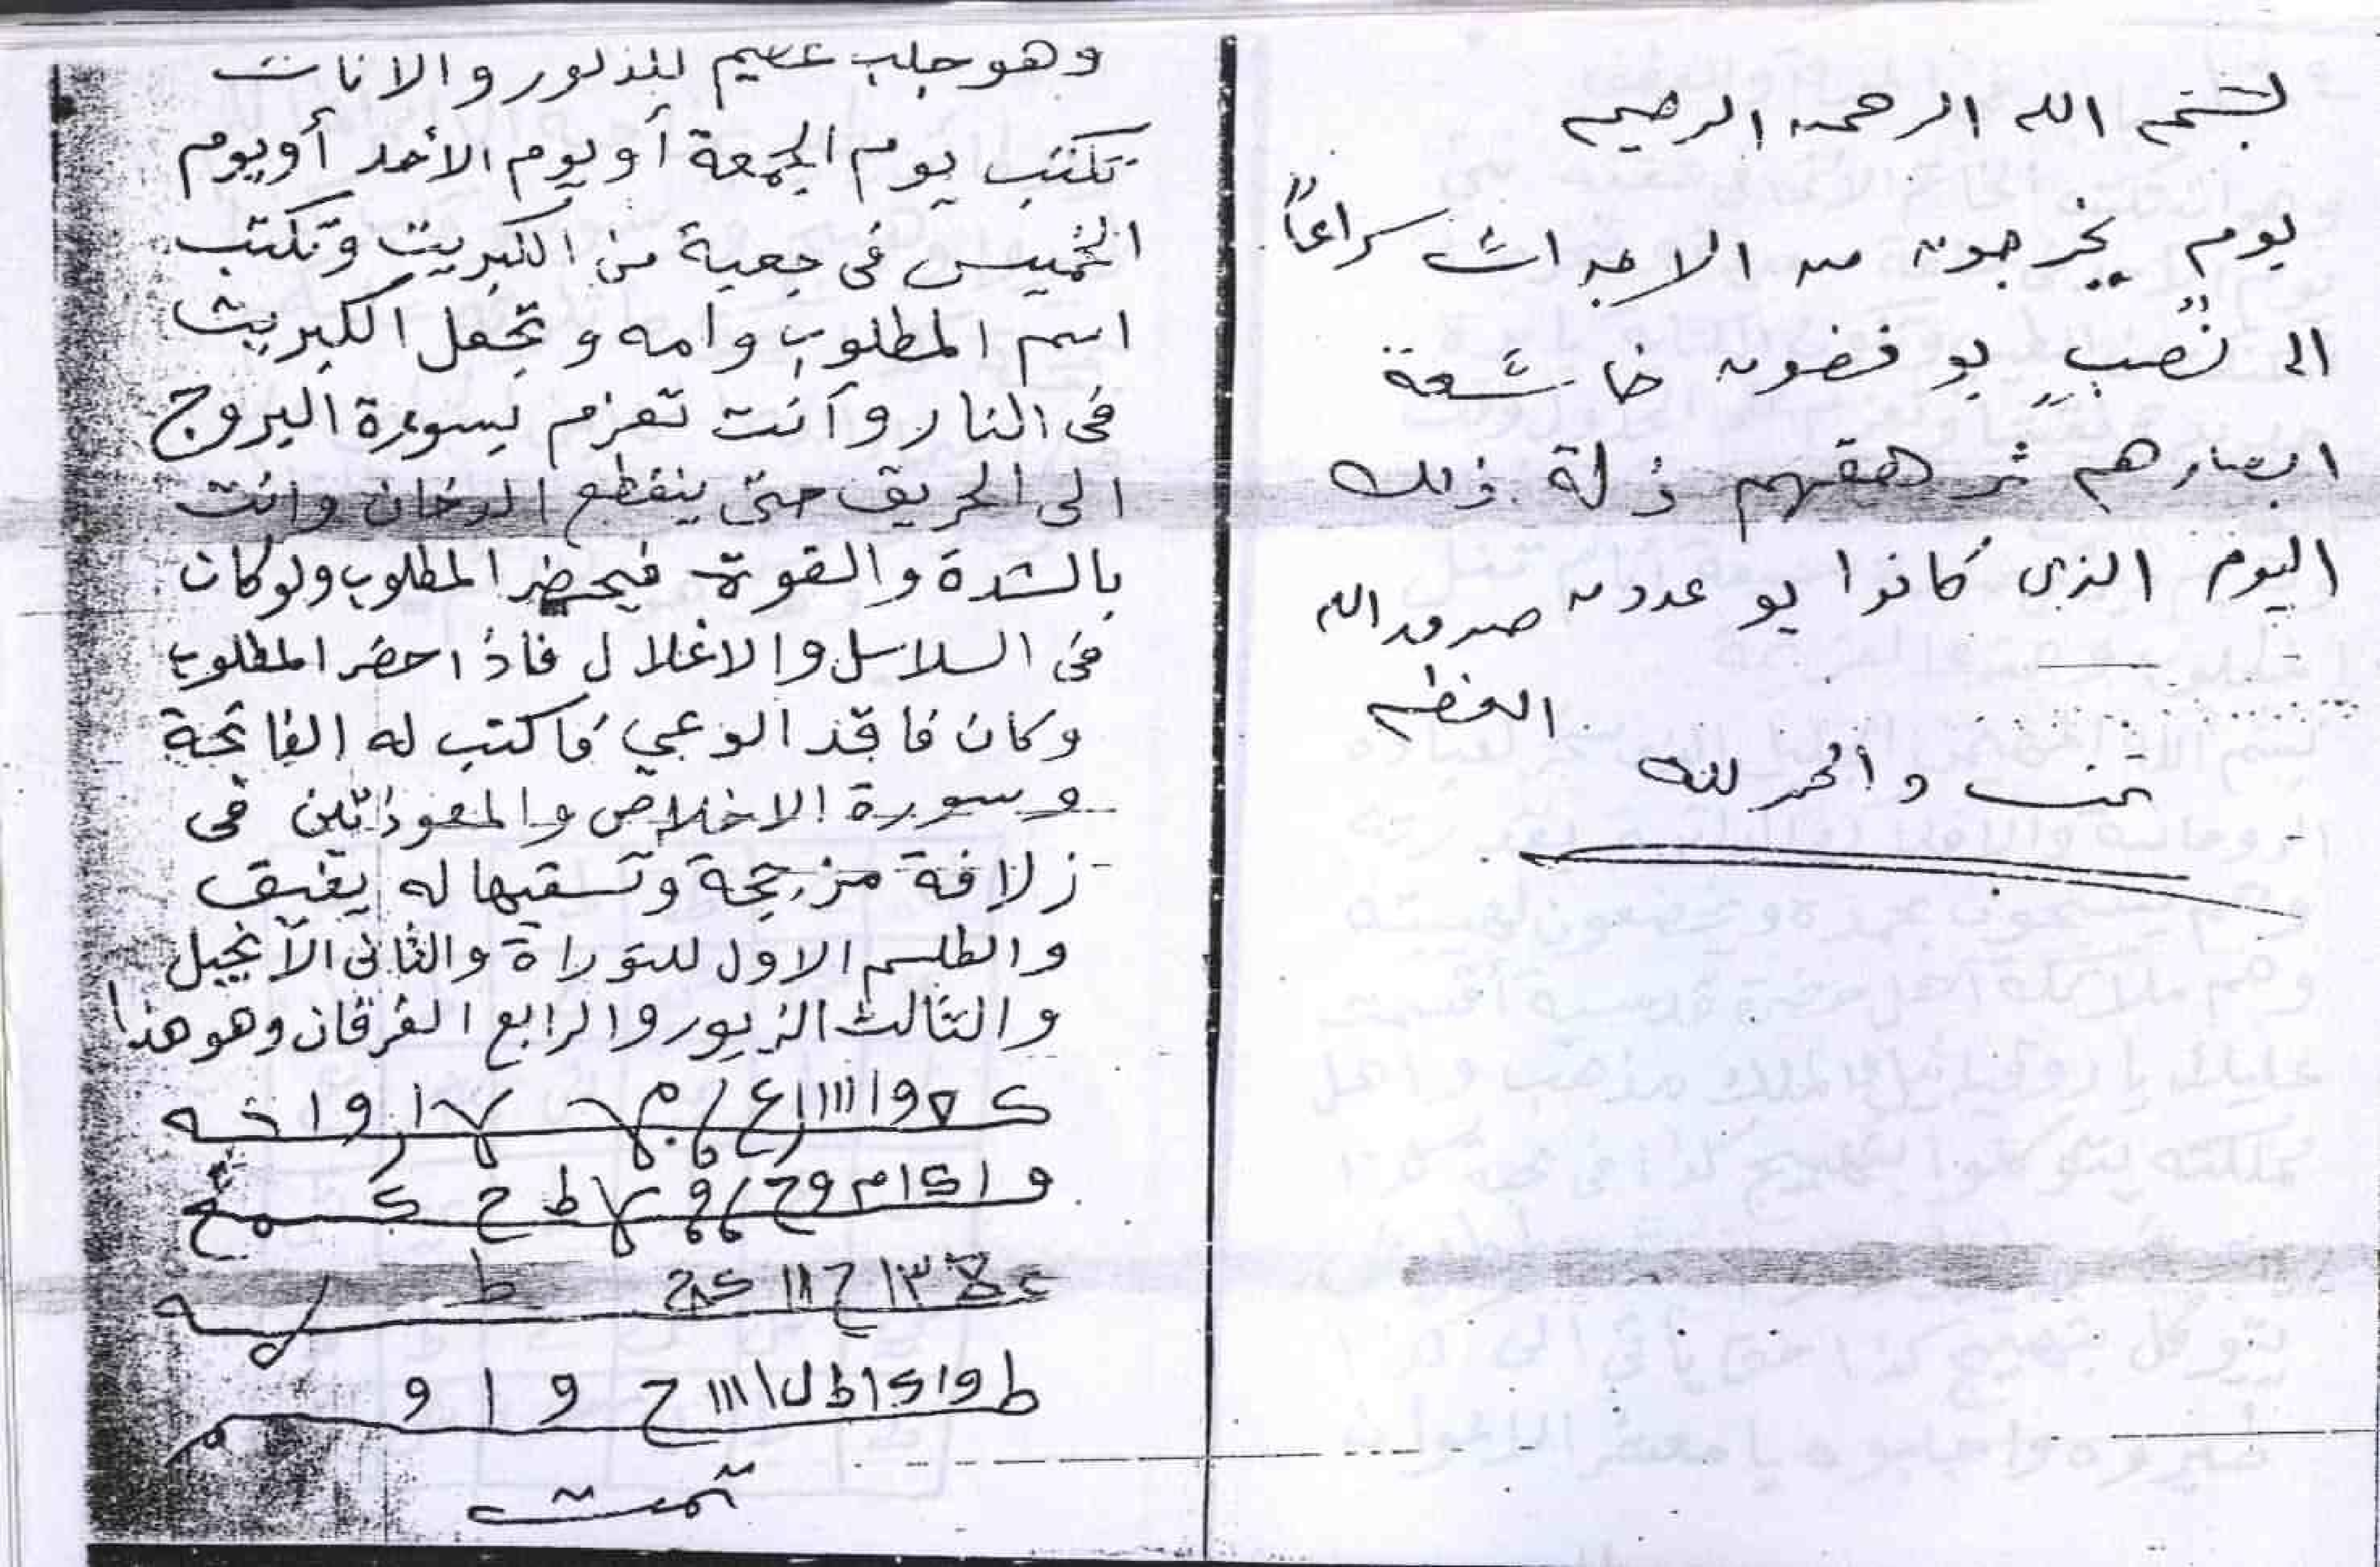 بسم الله الرحمن الرحيم
يوم يخرجون من الاجداث سراعاً
الى نُصبٍ يوفضون خاشعة
ابصارهم ترهقهم ذلة ذلك
اليوم الذى كانوا يوعدون صدق الله
العظيم
تمت والحمد لله
وهو جلب عظيم للذكور والاناث
تكتب يوم الجمعة أو يوم الأحد أو يوم
الخميس فى جعبة من الكبريت وتكتب
اسم المطلوب وامه وتجعل الكبريت
فى النار وأنت تعزم بسورة البروج
الى الحريق حتى ينقطع الدخان وانت
بالشدة والقوة فيحضر المطلوب ولو كان
فى السلاسل والاغلال فاذا حضر المطلوب
وكان فاقد الوعي فاكتب له الفاتحة
وسورة الاخلاص والمعوذاتين فى
زلافة مزججة وتسقيها له يفيق
والطلسم الاول للتوراة والثانى الأنجيل
والثالث الزبور والرابع الفرقان وهو هذا
تمت